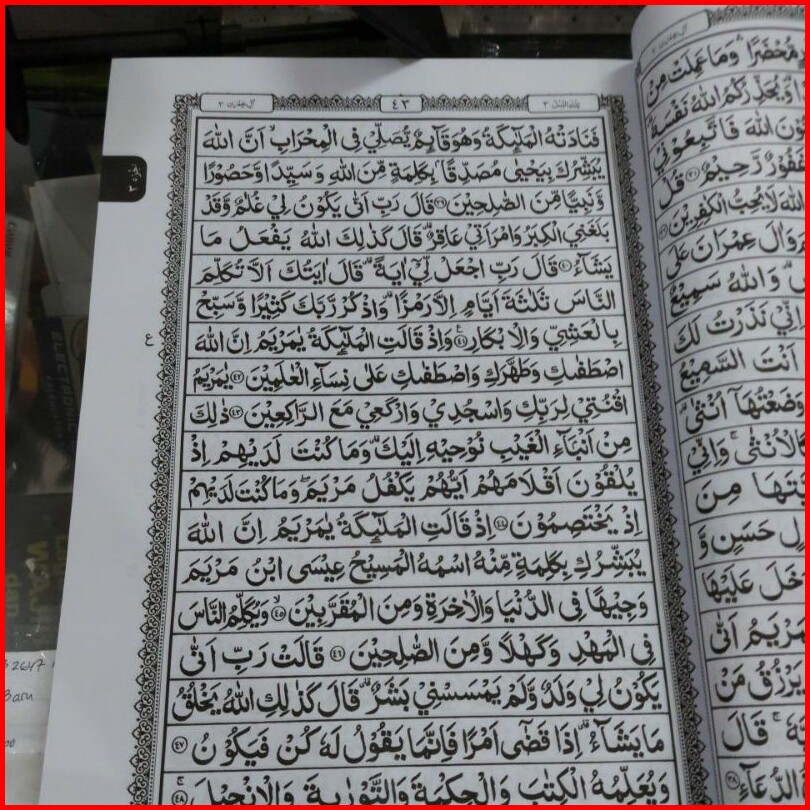 اٰل عمرٰن ٣
٤٣
تلك الرسل ٣
فَنَادَتْهُ الْمَلٰۤىِٕكَةُ وَهُوَ قَاۤىِٕمٌ يُّصَلِّيْ فِى الْمِحْرَابِۙ اَنَّ اللّٰهَ
يُبَشِّرُكَ بِيَحْيٰى مُصَدِّقًاۢ بِكَلِمَةٍ مِّنَ اللّٰهِ وَسَيِّدًا وَّحَصُوْرًا
وَّنَبِيًّا مِّنَ الصّٰلِحِيْنَ ٣٩ قَالَ رَبِّ اَنّٰى يَكُوْنُ لِيْ غُلٰمٌ وَّقَدْ
بَلَغَنِيَ الْكِبَرُ وَامْرَاَتِيْ عَاقِرٌۗ قَالَ كَذٰلِكَ اللّٰهُ يَفْعَلُ مَا
يَشَاۤءُ ٤٠ قَالَ رَبِّ اجْعَلْ لِّيْٓ اٰيَةًۗ قَالَ اٰيَتُكَ اَلَّا تُكَلِّمَ
النَّاسَ ثَلٰثَةَ اَيَّامٍ اِلَّا رَمْزًاۗ وَاذْكُرْ رَّبَّكَ كَثِيْرًا وَّسَبِّحْ
بِالْعَشِيِّ وَالْاِبْكَارِ ٤١ وَاِذْ قَالَتِ الْمَلٰۤىِٕكَةُ يٰمَرْيَمُ اِنَّ اللّٰهَ
ع
اصْطَفٰىكِ وَطَهَّرَكِ وَاصْطَفٰىكِ عَلٰى نِسَاۤءِ الْعٰلَمِيْنَ ٤٢ يٰمَرْيَمُ
اقْنُتِيْ لِرَبِّكِ وَاسْجُدِيْ وَارْكَعِيْ مَعَ الرَّاكِعِيْنَ ٤٣ ذٰلِكَ
مِنْ اَنْۢبَاۤءِ الْغَيْبِ نُوْحِيْهِ اِلَيْكَۗ وَمَا كُنْتَ لَدَيْهِمْ اِذْ
يُلْقُوْنَ اَقْلَامَهُمْ اَيُّهُمْ يَكْفُلُ مَرْيَمَۖ وَمَا كُنْتَ لَدَيْهِمْ
اِذْ يَخْتَصِمُوْنَ ٤٤ اِذْ قَالَتِ الْمَلٰۤىِٕكَةُ يٰمَرْيَمُ اِنَّ اللّٰهَ
يُبَشِّرُكِ بِكَلِمَةٍ مِّنْهُ اسْمُهُ الْمَسِيْحُ عِيْسَى ابْنُ مَرْيَمَ
وَجِيْهًا فِى الدُّنْيَا وَالْاٰخِرَةِ وَمِنَ الْمُقَرَّبِيْنَۙ ٤٥ وَيُكَلِّمُ النَّاسَ
فِى الْمَهْدِ وَكَهْلًا وَّمِنَ الصّٰلِحِيْنَ ٤٦ قَالَتْ رَبِّ اَنّٰى
يَكُوْنُ لِيْ وَلَدٌ وَّلَمْ يَمْسَسْنِيْ بَشَرٌۗ قَالَ كَذٰلِكِ اللّٰهُ يَخْلُقُ
مَا يَشَاۤءُۗ اِذَا قَضٰٓى اَمْرًا فَاِنَّمَا يَقُوْلُ لَهٗ كُنْ فَيَكُوْنُ ٤٧
وَيُعَلِّمُهُ الْكِتٰبَ وَالْحِكْمَةَ وَالتَّوْرٰىةَ وَالْاِنْجِيْلَ ٤٨
مُّحْضَرًا وَّمَا عَمِلَتْ مِنْ
وَيُحَذِّرُكُمُ اللّٰهُ نَفْسَهٗ
اللّٰهَ فَاتَّبِعُوْنِيْ
غَفُوْرٌ رَّحِيْمٌ ٣١ قُلْ
اللّٰهَ لَا يُحِبُّ الْكٰفِرِيْنَ ٣٢
وَّاٰلَ عِمْرٰنَ عَلَى
وَاللّٰهُ سَمِيْعٌ
اِنِّيْ نَذَرْتُ لَكَ
اَنْتَ السَّمِيْعُ
وَضَعْتُهَآ اُنْثٰى
كَالْاُنْثٰى وَاِنِّيْ
مِنَ
حَسَنٍ وَّ
دَخَلَ عَلَيْهَا
يٰمَرْيَمُ اَنّٰى
يَرْزُقُ مَنْ
قَالَ
الدُّعَاۤءِ ٣٨